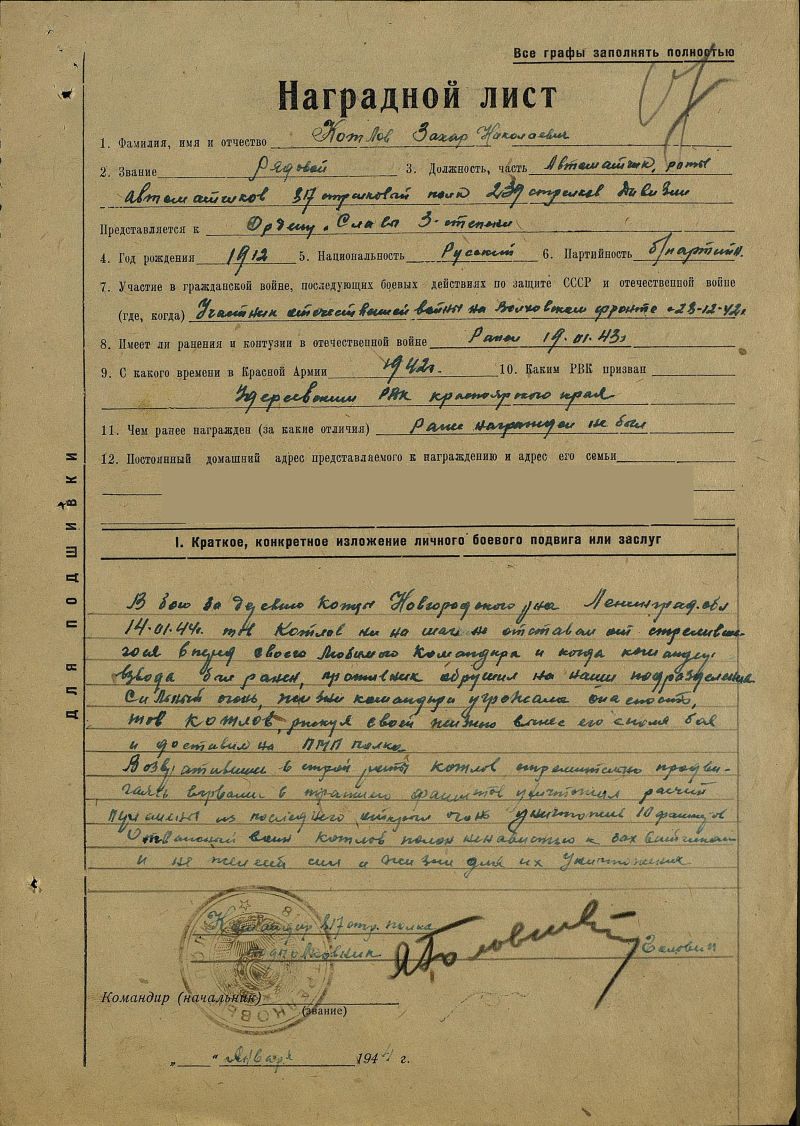 Все графы заполнять полностью
Наградной лист
1. Фамилия, имя и отчество Котлов Захар Николаевич
2. Звание Рядовой 3. Должность, часть Автоматчик, роты
автоматчиков 817 стрелковый полк 239 стрелков Дивизии
Представляется к Ордену "Славы 3-степени
4. Год рождения 1912 5. Национальность Русский 6. Партийность б/партийн.
7. Участие в гражданской войне, последующих боевых действиях по защите СССР и отечественной войне
(где, когда) Участник отечественной войны на Волховском фронте с 28-12-42г
8. Имеет ли ранения и контузии в отечественной войне Ранен 19.01.43г
9. С какого времени в Красной Армии 1942г. 10. Каким РВК призван
РВК красноярского края
11. Чем ранее награжден (за какие отличия) Ранее награжден не был
12. Постоянный домашний адрес представляемого к награждению и адрес его семьи
I. Краткое, конкретное изложение личного боевого подвига или заслуг
В бою за Новгородского р-на Ленинград. обл
14.01.44г. тов Котлов ни на шаг не отставал от
вперед своего любимого командира и когда командир
взвода был ранен, противник обрушил на наши подразделения
сильный огонь, жизни командира угрожала опасность,
тов Котлов, рискуя своей жизнью вынес его с поля боя
и доставил на ПМП полка
Возвратившись в строй роты Котлов стремительно продви-
гаясь в траншею фашистов уничтожил расчет
пулемета из последнего открыл огонь уничтожив 10 фашистов
Отважный воин Котлов полон ненавистью к захватчикам
и не жалеет сил и жизни для их уничтожения
Командир 817 стр. полка
подполковник Головин
Командир (начальник)
(звание)
„ " января 1944 г.
ДЛЯ ПОДШИВКИ